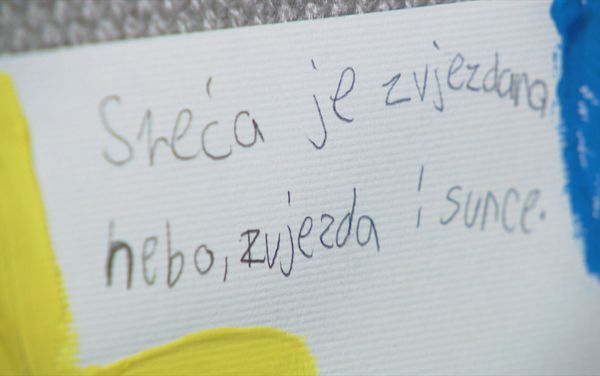 Sreća je zvjezdana
nebo, zvjezda i sunce.